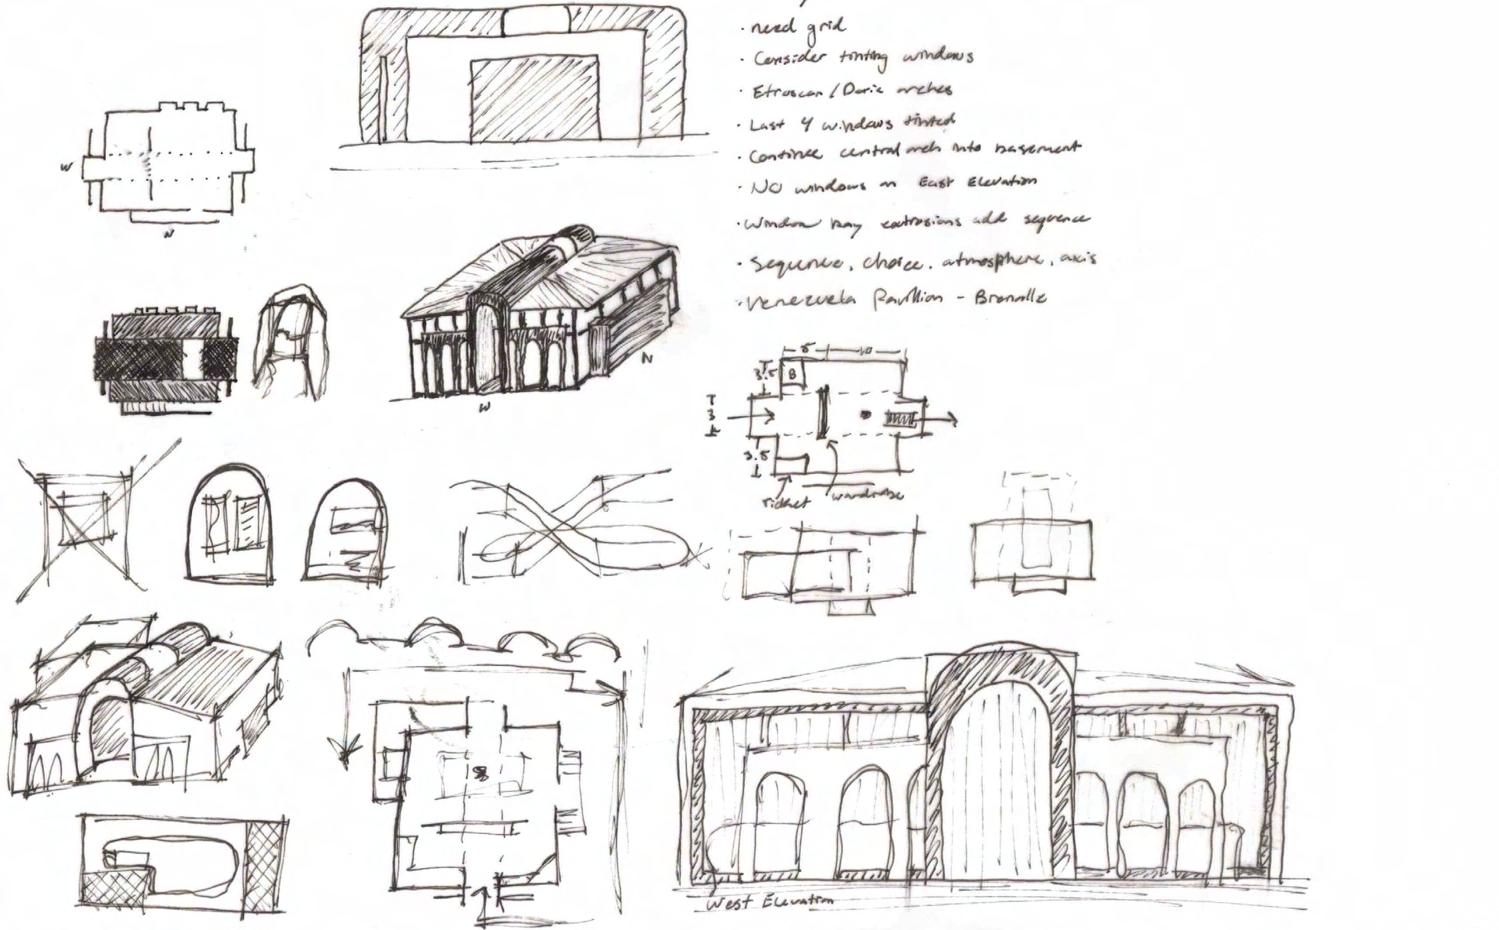 · need grid
· Consider tinting windows
· Etruscan / Doric arches
· Last 4 windows tinted
· Continue central arch into basement
· NO windows on East Elevation
· Window bay extrusions add sequence
· Sequence, choice, atmosphere, axis
· Venezuela Pavillion -
W
N
N
W
5
10
3.5
B
3
3.5
ticket
wardrobe
West Elevation